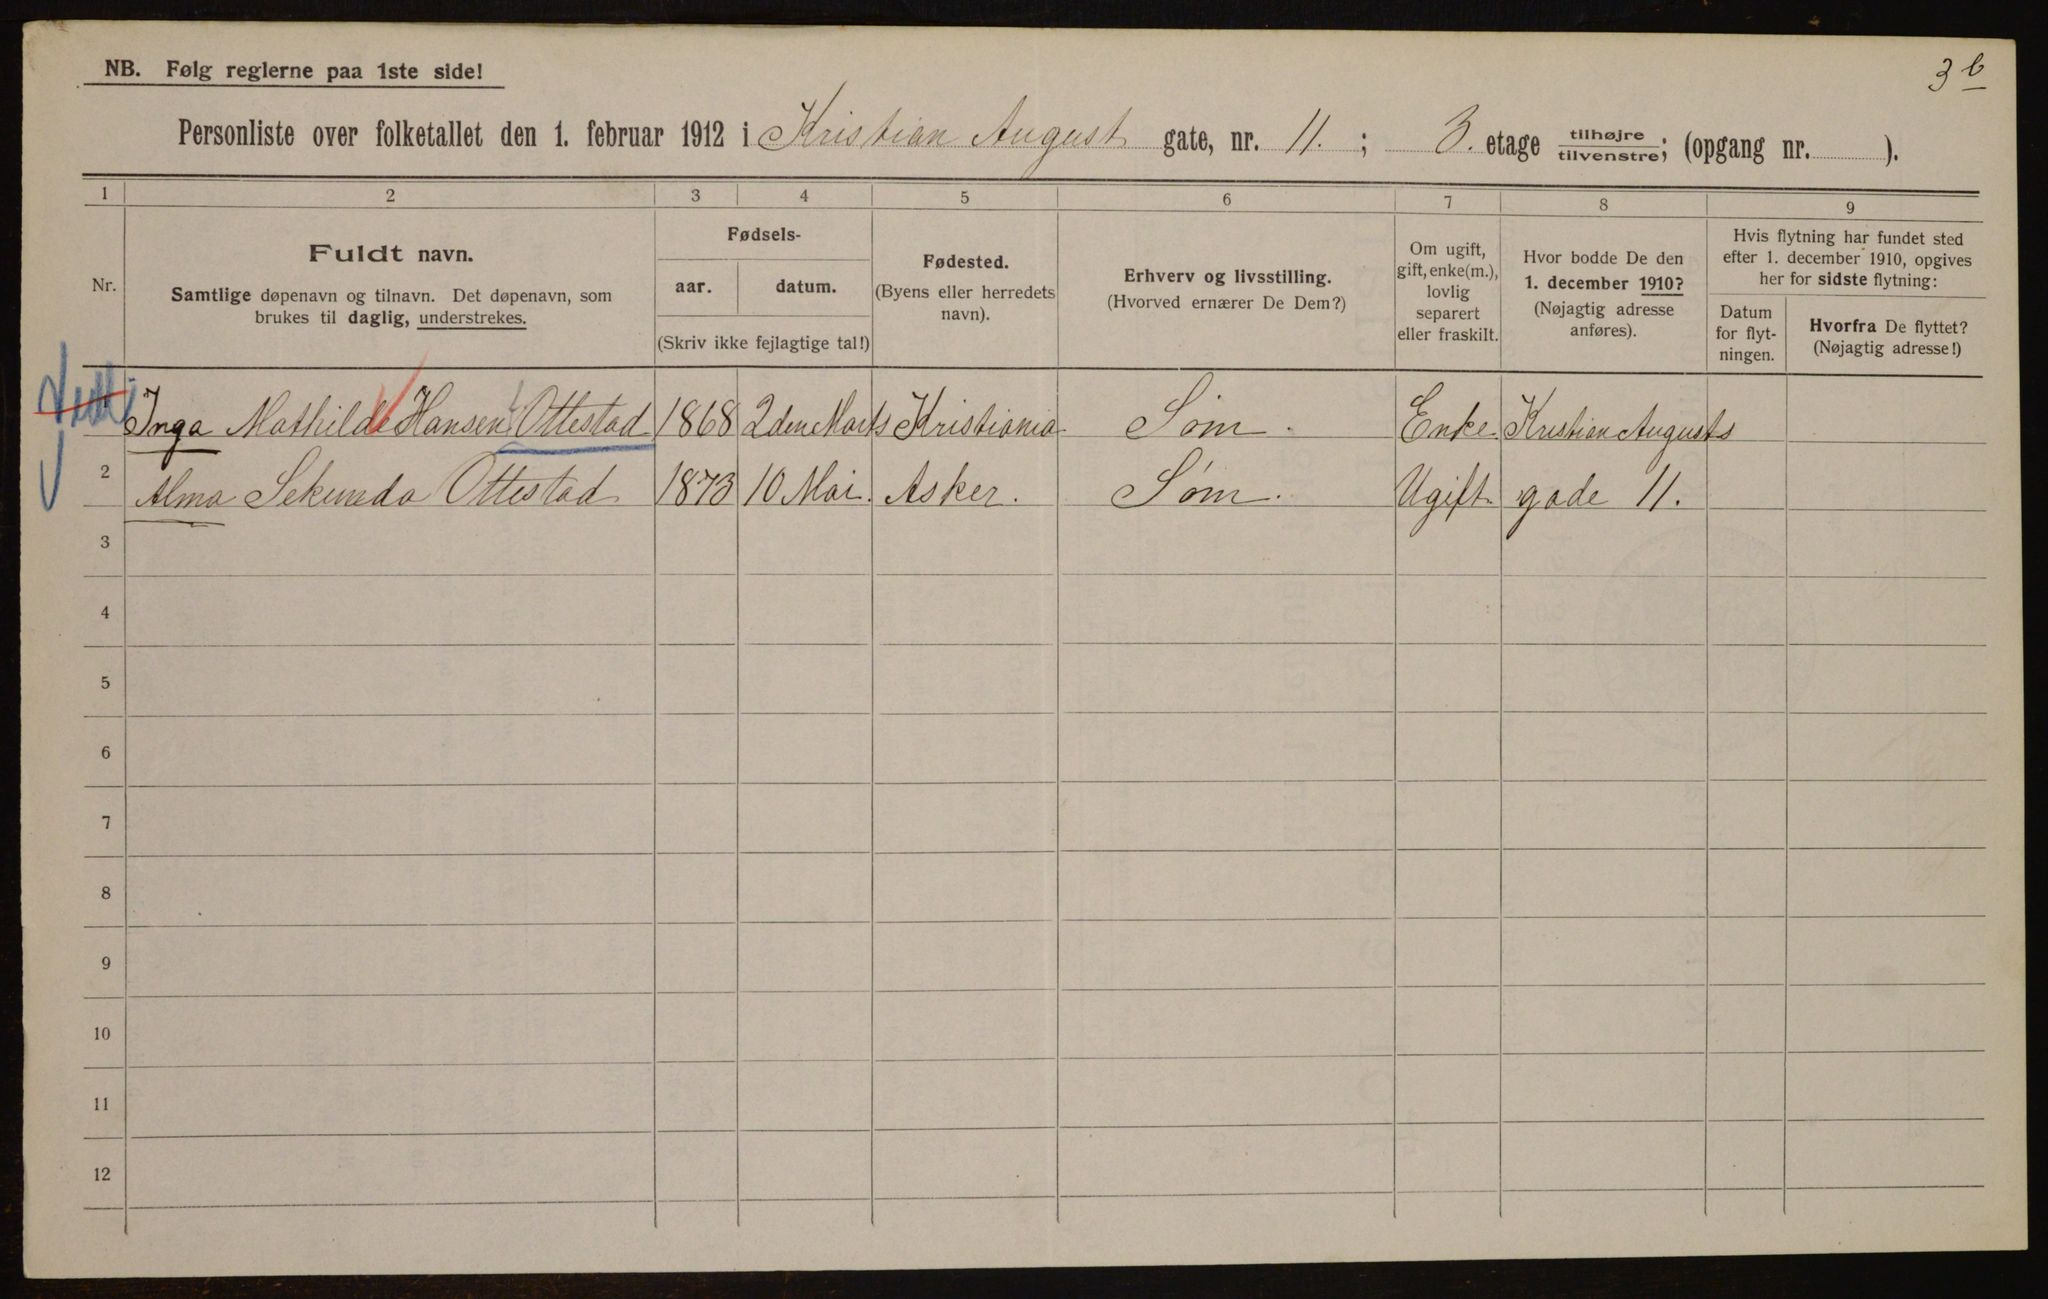 3 b
NB. Følg reglerne paa 1ste side!
Personliste over folketallet den 1. februar 1912 i Kristian August gate, nr. 11. ; 3. etage tilhøjre/tilvenstre; (opgang nr. ).
1 2 3 4 5 6 7 8 9
Nr.
Fuldt navn.
Samtlige døpenavn og tilnavn. Det døpenavn, som
brukes til daglig, understrekes.
Fødsels-
aar. datum.
(Skriv ikke fejlagtige tal!)
Fødested.
(Byens eller herredets
navn).
Erhverv og livsstilling.
(Hvorved ernærer De Dem?)
Om ugift,
gift, enke(m.),
lovlig
separert
eller fraskilt.
Hvor bodde De den
1. december 1910?
(Nøjagtig adresse
anføres).
Hvis flytning har fundet sted
efter 1. december 1910, opgives
her for sidste flytning:
Datum
for flyt-
ningen.
Hvorfra De flyttet?
(Nøjagtig adresse!)
Inga Mathilde Hansen Ottestad 1868 2den Marts Kristiania Søm. Enke Kristian Augusts
2 Alma Sekunda Ottestad 1873 10 Mai. Asker. Søm. Ugift. gade 11.
3
4
5
6
7
8
9
10
11
12